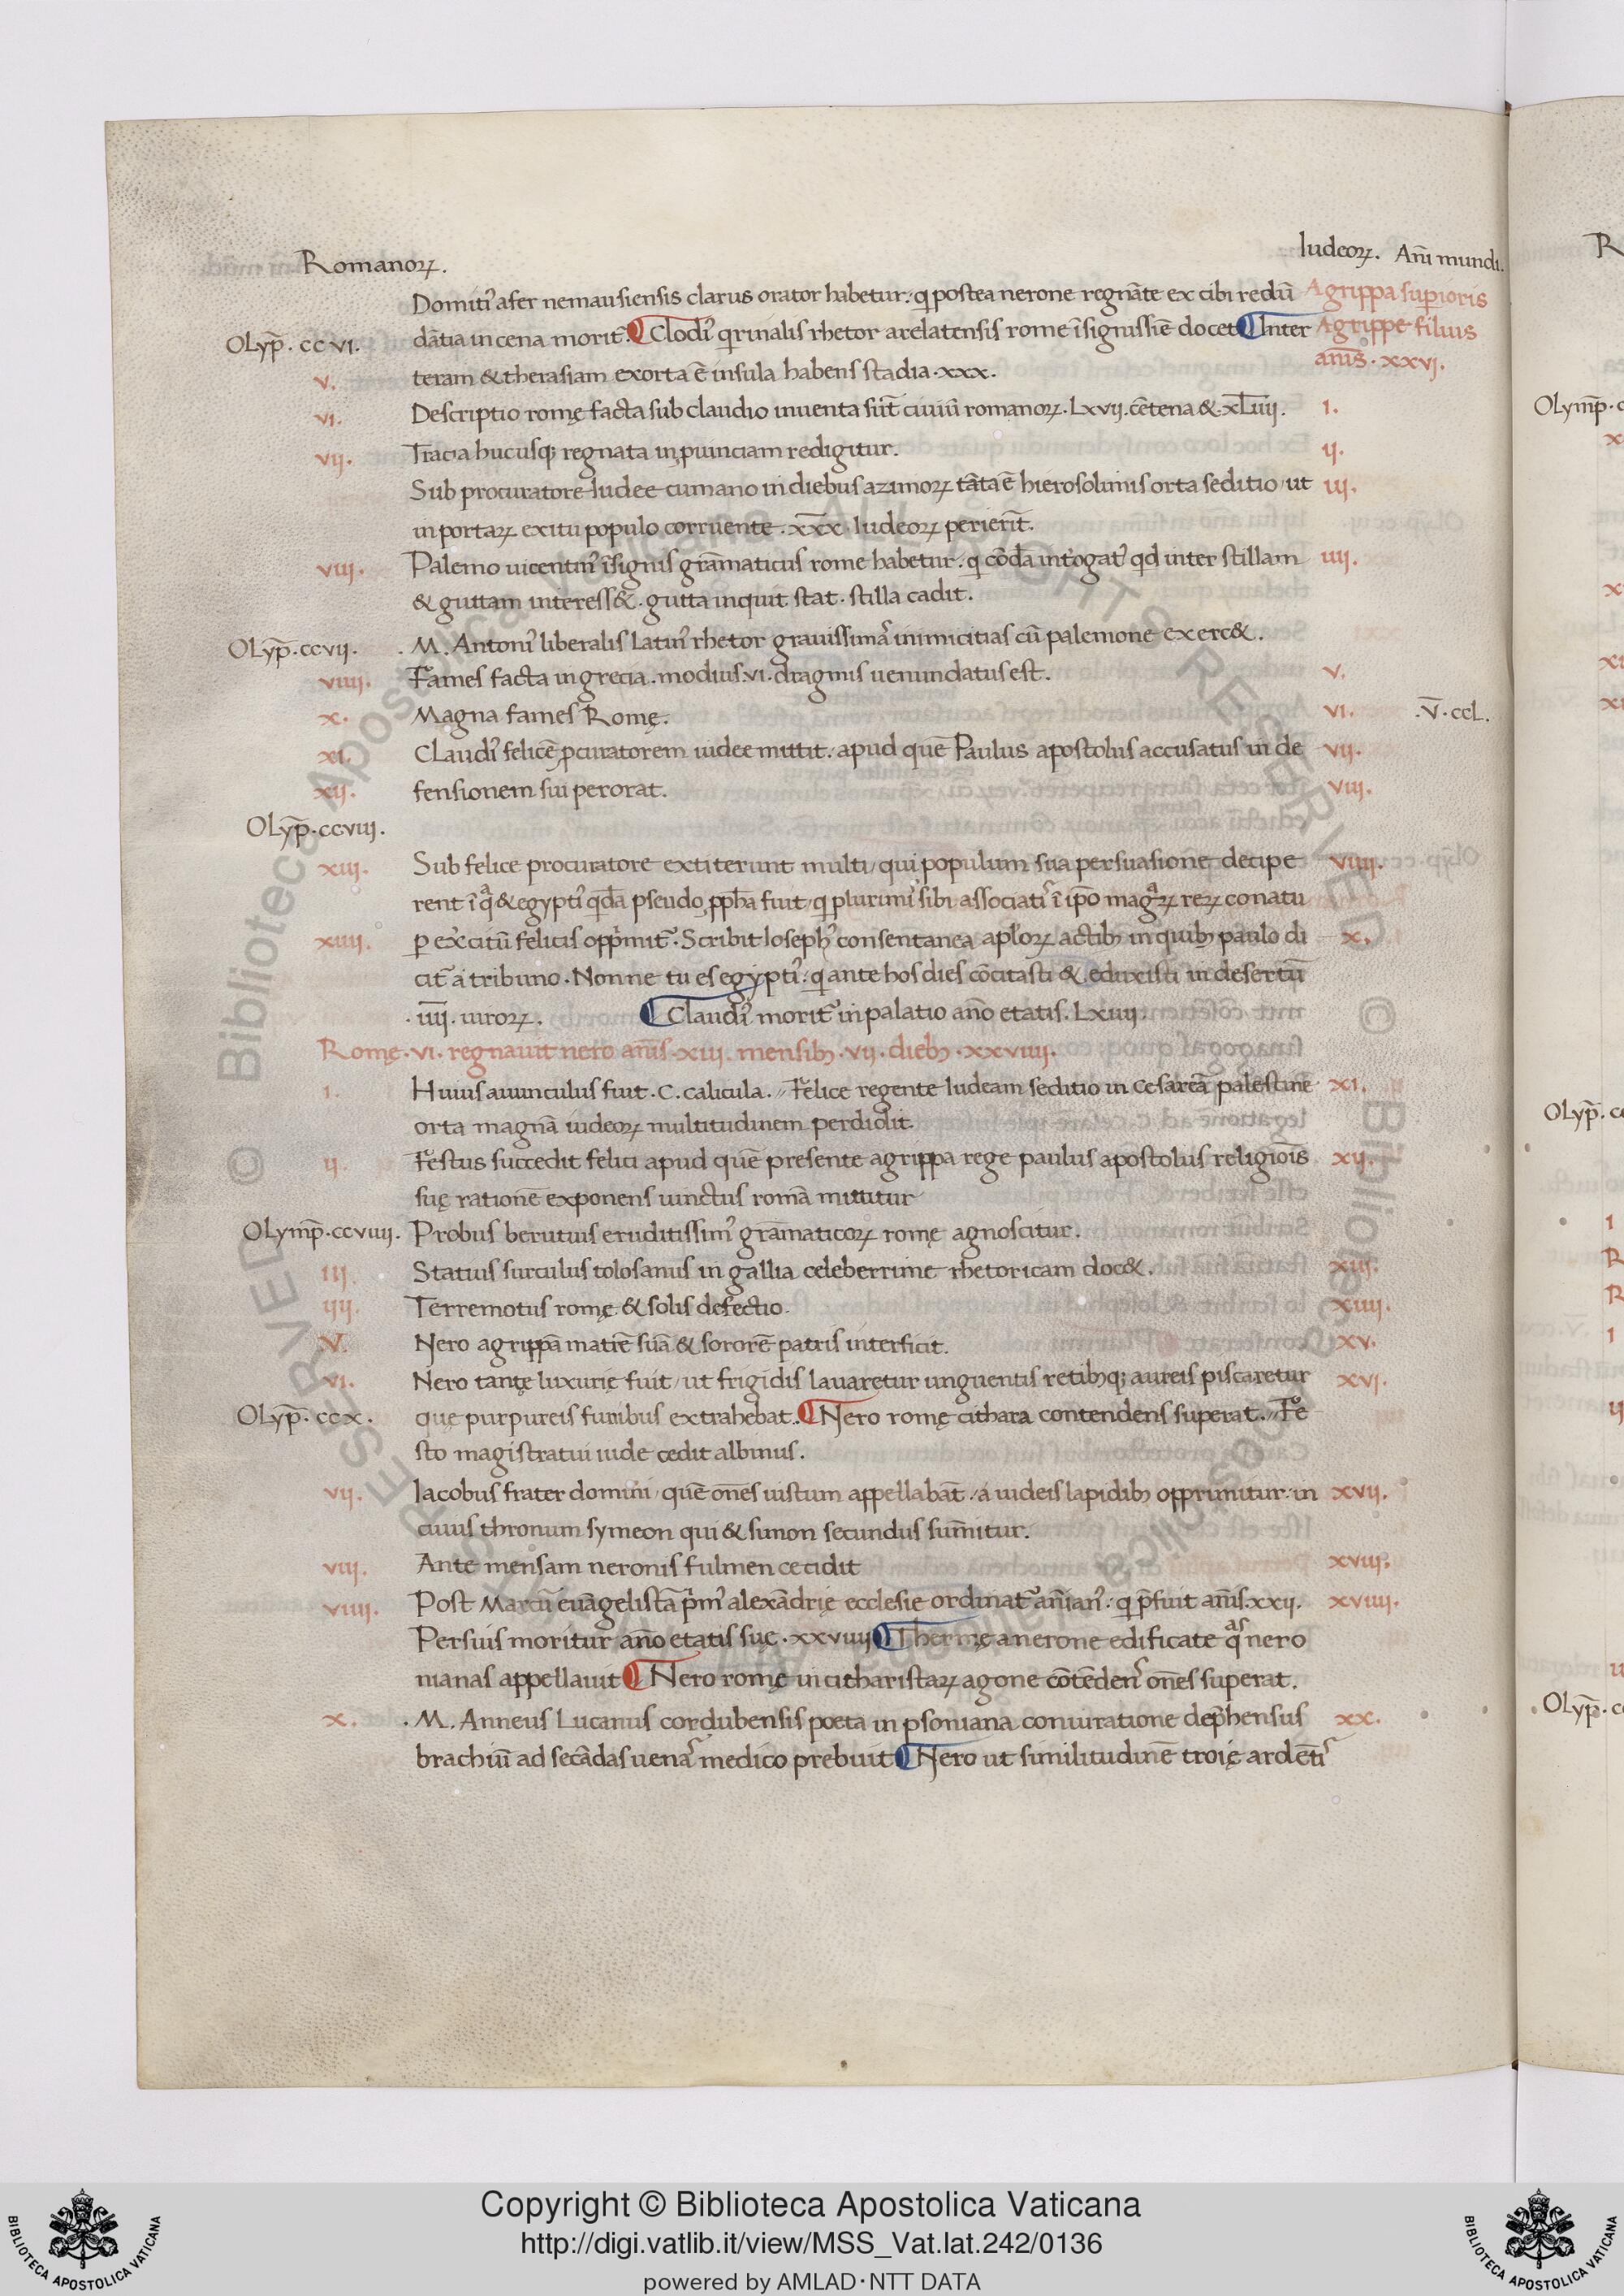 Romanoꝝ. Iudeoꝝ. Añi mundi.
Domitiꝰ afer nemausiensis clarus orator habetur. qͥ postea nerone regnāte ex cibi redū Agrippa suꝑioris
Olyp̄. ccvi. dātia in cena morit᷑. Clodiꝰ qͥrinalis rhetor arelatensis rome īsignissīe docet Inter Agrippe filius
v. teram & therasiam exorta ē insula habens stadia .xxx. annis̄ . xxvj.
vi. Descriptio romę facta sub claudio inuenta sūt ciuiū romanoꝝ .Lxvij. cētena &. xLiiij. 1.
vij. Tracia hucusq; regnata in ꝓuinciam redigitur. ij.
Sub procuratore Iudee cumano in diebus azimoꝝ tāta ē hierosolimis orta seditio / ut iij.
in portaꝝ exitu populo corruente . xxx̄ . Iudeoꝝ perierīt.
viij. Palemo uicentinꝰ īsignis grāmaticus rome habetur . qͥ cōdā int̓ogatꝰ qͥd inter stillam iiij.
& guttam interess&. gutta inquit stat. stilla cadit.
Olyp̄.ccvij. . M. Antoniꝰ liberalis Latinꝰ rhetor grauissimaꝰ inimicitias cū palemone exerc&.
viiij. Fames facta in grecia. modius .vi. dragmis uenundatus est. v.
x. Magna fames Romę. vi. .V̄. ccL.
xi. Claudiꝰ felicē ꝓcuratorem iudee mittit. apud quē Paulus apostolus accusatus in de vij.
xij. fensionem sui perorat. viij.
Olyp̄.ccviij.
xiij. Sub felice procuratore extiterunt multi / qui populum sua persuasione decipe viiij.
rent ī qͣ & egyptiꝰ qͥdā pseudo ꝓph̄a fuit / qͥ plurimꝰ sibi associatiꝰ ī ip̄o magͣꝝ reꝝ conatu
xiiij. ꝑ exc̓itū felicis opp̄mit᷑. Scribit Iosephꝰ consentanea apl̓oꝝ actibꝫ in quibꝫ paulo di x.
cit᷑ a tribuno. Nonne tu es egyptiꝰ. qͥ ante hos dies cōcitasti & eduxisti in desertū
. iiij̄. uiroꝝ. Claudiꝰ morit᷑ in palatio año etatis. Lxiiij.
Romę .vi. regnauit nero annīs .xiij. mensibꝫ .vij. diebꝫ .xxviiij.
1. Huius auunculus fuit .C. calicula. Felice regente Iudeam seditio in cesareā palestine xi.
orta magnā iudeoꝝ multitudinem perdidit.
ij. Festus succedit felici apud quē presente agrippa rege paulus apostolus religiōis xij.
suę rationē exponens uinctus romā mittitur
Olymp̄.ccviiij. Probus berutius eruditissimꝰ grāmaticoꝝ romę agnoscitur.
III. Statius surculus tolosanus in gallia celeberrime rhetoricam doc&. xiij.
iiij. Terremotus romę & solis defectio. xiiij.
V. Nero agrippā matrē suā & sororē patris interficit. xv.
vi. Nero tantę luxurię fuit / ut frigidis lauaretur unguentis retibꝫq; aureis piscaretur xvj.
Olyp̄. ccx. que purpureis funibus extrahebat. Nero romę cithara contendens superat. Fe
sto magistratui iude cedit albinus.
vij. Iacobus frater domini / quē om̄es iustum appellabāt . a iudeis lapidibꝫ opprimitur. in xvij.
cuius thronum symeon qui & simon secundus sum̄itur.
viij. Ante mensam neronis fulmen cecidit xviij.
viiij. Post Marcū euāgelistā pͥmꝰ alexādrię ecclesie ordinat᷑ añianꝰ. qͥ p̄fuit annīs. xxij. xviiij.
Persius moritur año etatis suę . xxviiij Thermę a nerone edificate qͣs nero
nianas appellauit Nero romę in citharistaꝝ agone cōtēdenꝰ om̄es superat.
x. . M. Anneus Lucanus cordubensis poeta in psoniana coniuratione dep̄hensus xx.
brachiū ad secādas uenaꝰ medico prebuit Nero ut similitudinē troię ardētiꝰ
Copyright © Biblioteca Apostolica Vaticana
http://digi.vatlib.it/view/MSS_Vat.lat.242/0136
powered by AMLAD·NTT DATA
BIBLIOTECA APOSTOLICA VATICANA
BIBLIOTECA APOSTOLICA VATICANA